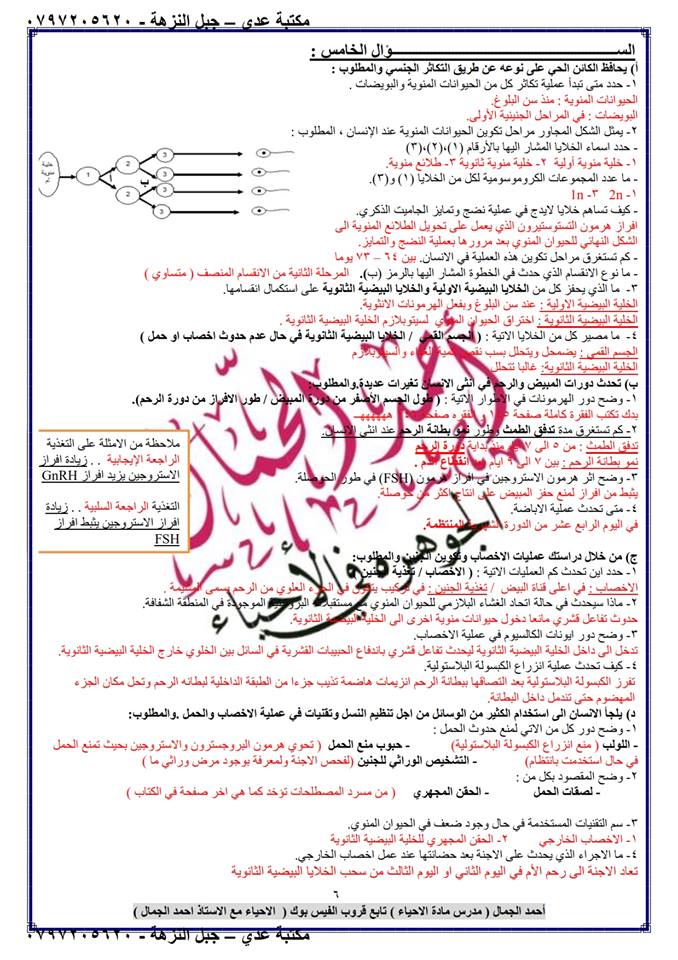 مكتبة عدي – جبل النزهة - ٠٧٩٧٢٠٥٦٢٠
الســـــؤال الخامس :
أ) يحافظ الكائن الحي على نوعه عن طريق التكاثر الجنسي والمطلوب :
١- حدد متى تبدأ عملية تكاثر كل من الحيوانات المنوية والبويضات .
الحيوانات المنوية : منذ سن البلوغ.
البويضات : في المراحل الجنينية الأولى.
٢- يمثل الشكل المجاور مراحل تكوين الحيوانات المنوية عند الإنسان ، المطلوب :
- حدد اسماء الخلايا المشار اليها بالأرقام (١)،(٢)،(٣)
١- خلية منوية أولية ٢- خلية منوية ثانوية ٣- طلائع منوية.
- ما عدد المجموعات الكروموسومية لكل من الخلايا (١) و(٣).
١- 2n ٣- 1n
- كيف تساهم خلايا لايدج في عملية نضج وتمايز الجاميت الذكري.
افراز هرمون التستوستيرون الذي يعمل على تحويل الطلائع المنوية الى
الشكل النهائي للحيوان المنوي بعد مرورها بعملية النضج والتمايز.
- كم تستغرق مراحل تكوين هذه العملية في الانسان. بين ٦٤ – ٧٣ يوما
- ما نوع الانقسام الذي حدث في الخطوة المشار اليها بالرمز (ب). المرحلة الثانية من الانقسام المنصف ( متساوي )
خلية منوية أم
1
2
2
3
3
3
3
ب
٣- ما الذي يحفز كل من الخلايا البيضية الاولية والخلايا البيضية الثانوية على استكمال انقسامها.
الخلية البيضية الاولية : عند سن البلوغ وبفعل الهرمونات الانثوية.
الخلية البيضية الثانوية : اختراق الحيوان المنوي لسيتوبلازم الخلية البيضية الثانوية .
٤- ما مصير كل من الخلايا الاتية : ( الجسم القمي / الخلايا البيضية الثانوية في حال عدم حدوث اخصاب او حمل )
الجسم القمي : يضمحل ويتحلل بسب نقص كمية الغذاء والسيتوبلازم
الخلية البيضية الثانوية: غالبا تتحلل
ب) تحدث دورات المبيض والرحم في أنثى الانسان تغيرات عديدة.والمطلوب:
١- وضح دور الهرمونات في الاطوار الاتية : ( طول الجسم الأصفر من دورة المبيض / طور الافراز من دورة الرحم).
بدك تكتب الفقرة كاملة صفحة
٢- كم تستغرق مدة تدفق الطمث وطور نمو بطانة الرحم عند انثى الانسان.
تدفق الطمث : من ٥ الى ٧ منذ بداية دورة الرحم
نمو بطانة الرحم : بين ٧ الى ٩ ايام انقطاع الدم .
٣- وضح اثر هرمون الاستروجين في افراز هرمون (FSH) في طور الحوصلة.
يثبط من افراز لمنع حفز المبيض على انتاج اكثر من حوصلة.
٤- متى تحدث عملية الاباضة.
في اليوم الرابع عشر من الدورة الشهرية المنتظمة.
ملاحظة من الامثلة على التغذية
الراجعة الإيجابية .. زيادة افراز
الاستروجين يزيد افراز GnRH
التغذية الراجعة السلبية .. زيادة
افراز الاستروجين يثبط افراز
FSH
ج) من خلال دراستك عمليات الاخصاب وتكوين الجنين والمطلوب:
١- حدد اين تحدث كم العمليات الاتية : ( الاخصاب / تغذية الجنين )
الاخصاب : في اعلى قناة البيض / تغذية الجنين : في تركيب يتكون في الجزء العلوي من الرحم يسمى المشيمة .
٢- ماذا سيحدث في حالة اتحاد الغشاء البلازمي للحيوان المنوي مع مستقبلات البروتين الموجودة في المنطقة الشفافة.
حدوث تفاعل قشري مانعا دخول حيوانات منوية اخرى الى الخلية البيضية الثانوية.
٣- وضح دور ايونات الكالسيوم في عملية الاخصاب.
تدخل الى داخل الخلية البيضية الثانوية ليحدث تفاعل قشري باندفاع الحبيبات القشرية في السائل بين الخلوي خارج الخلية البيضية الثانوية.
٤- كيف تحدث عملية انزراع الكبسولة البلاستولية.
تفرز الكبسولة البلاستولية بعد التصاقها ببطانة الرحم انزيمات هاضمة تذيب جزءا من الطبقة الداخلية لبطانه الرحم وتحل مكان الجزء
المهضوم حتى تندمل داخل البطانة.
د) يلجأ الانسان الى استخدام الكثير من الوسائل من اجل تنظيم النسل وتقنيات في عملية الاخصاب والحمل .والمطلوب:
١- وضح دور كل من الاتي لمنع حدوث الحمل :
- اللولب ( منع انزراع الكبسولة البلاستولية) - حبوب منع الحمل ( تحوي هرمون البروجسترون والاستروجين بحيث تمنع الحمل
في حال استخدمت بانتظام) - التشخيص الوراثي للجنين (لفحص الاجنة ولمعرفة بوجود مرض وراثي ما )
٢- وضح المقصود بكل من :
- لصقات الحمل - الحقن المجهري ( من مسرد المصطلحات تؤخد كما هي اخر صفحة في الكتاب )
٣- سم التقنيات المستخدمة في حال وجود ضعف في الحيوان المنوي.
١- الاخصاب الخارجي ٢- الحقن المجهري للخلية البيضية الثانوية
٤- ما الاجراء الذي يحدث على الاجنة بعد حضانتها عند عمل اخصاب الخارجي.
تعاد الاجنة الى رحم الأم في اليوم الثاني او اليوم الثالث من سحب الخلايا البيضية الثانوية
أحمد الجمال
الجوهرة في الأحياء
٦
أحمد الجمال ( مدرس مادة الاحياء ) تابع قروب الفيس بوك ( الاحياء مع الاستاذ احمد الجمال )
مكتبة عدي – جبل النزهة - ٠٧٩٧٢٠٥٦٢٠